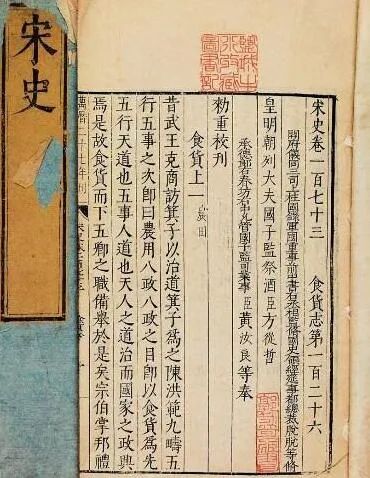 宋史
宋史卷一百七十三　食貨志第一百二十六
開府儀同三司上柱國錄軍國重事前中書右丞相監修國史領經筵事都總裁脫脫等修
皇明朝列大夫國子監祭酒臣方從哲
承德郎右春坊右中允管國子監司業事臣黃汝良等奉
勑重校刊
食貨上一　農田
昔武王克商訪箕子以治道箕子爲之陳洪範九疇五
行五事之次即曰農用八政八政之目即以食貨爲先
五行天道也五事人道也天人之道治而國家之政興
焉是故食貨而下五卿之職備舉於是矣宗伯掌邦禮